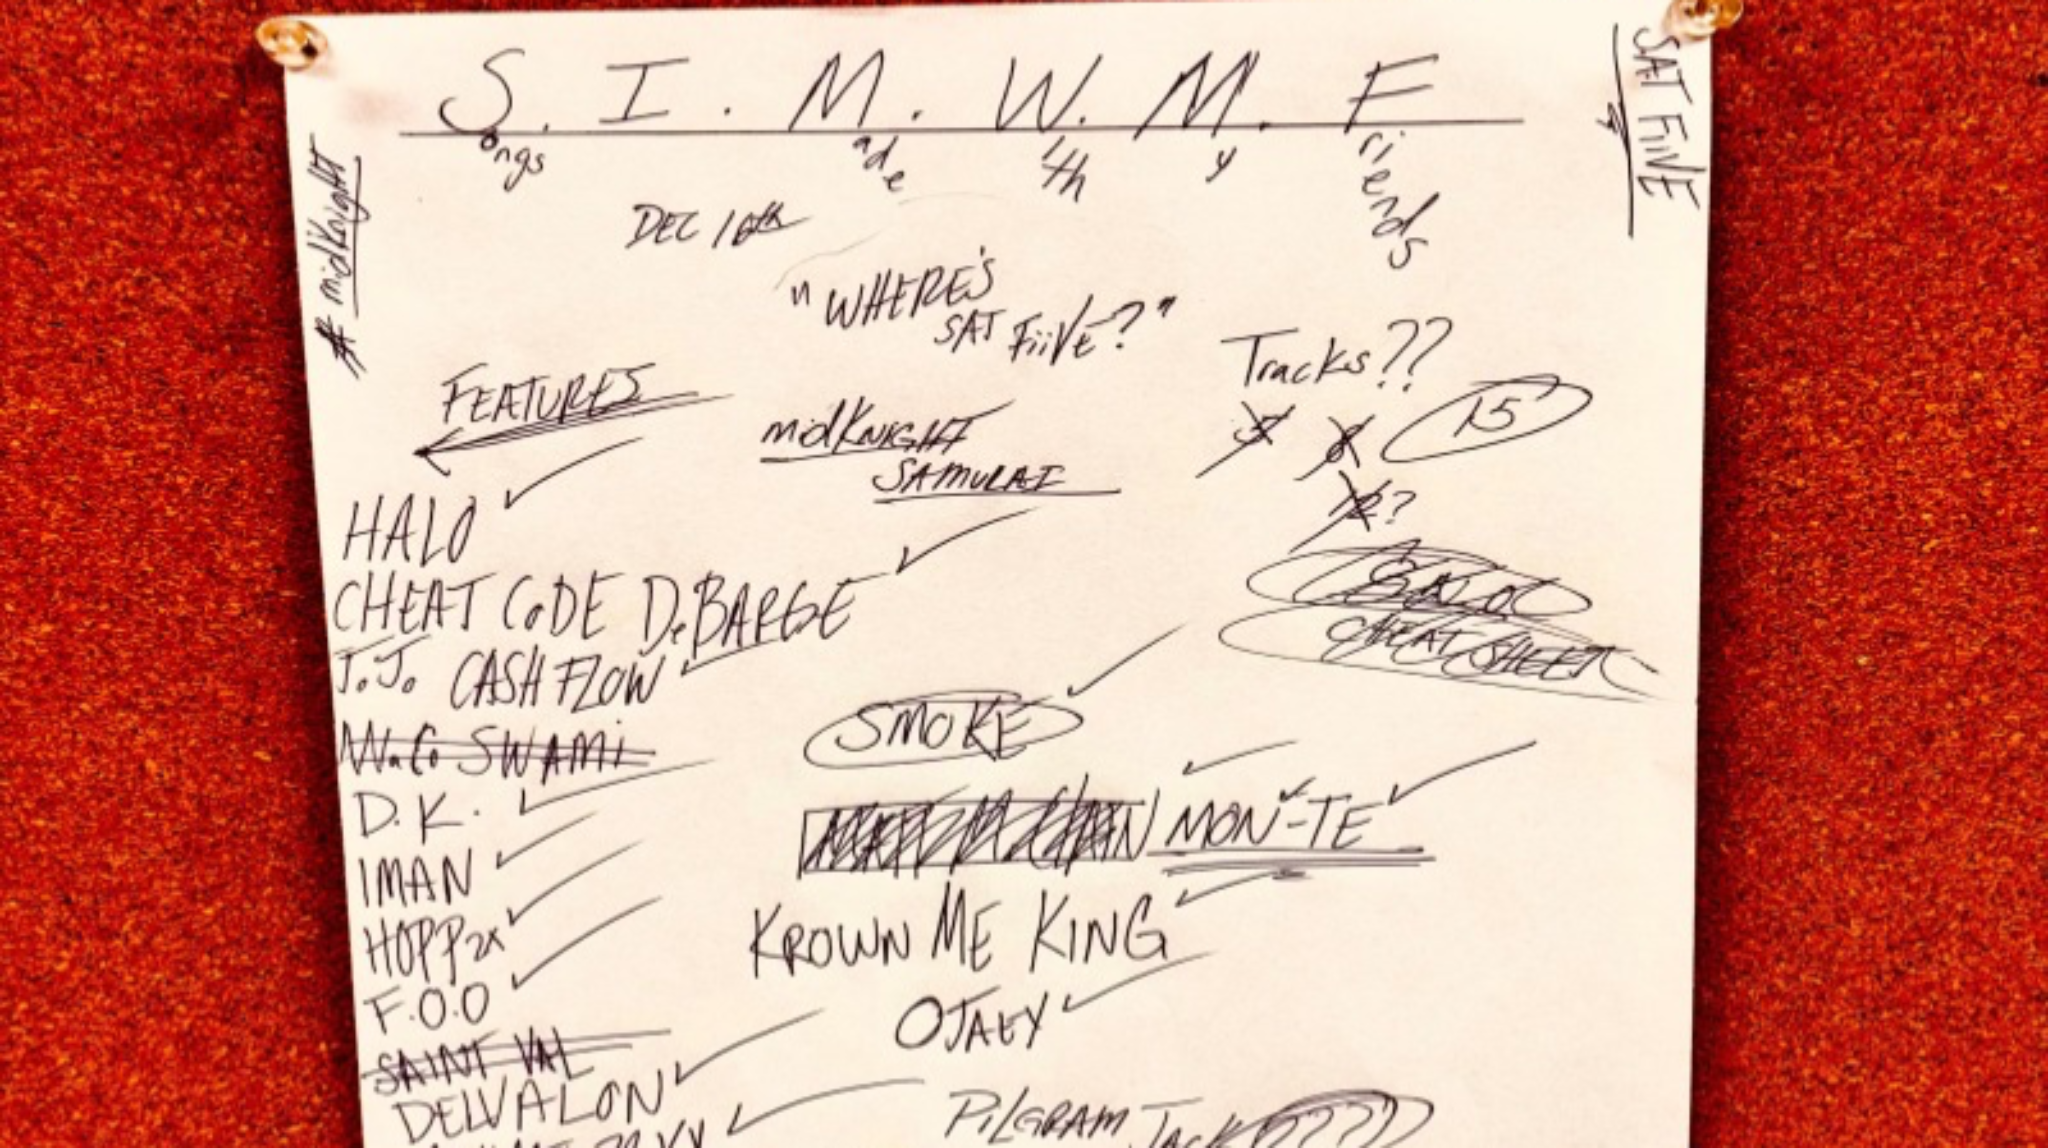 S. I. M. W. M. F
ongs ade ith y riends
SAT FiiVE
# midKnight
DEC 16th
"WHERE'S
SAT FiiVE?"
Tracks??
FEATURES
15
midKNIGHT
SAMURAI
12?
HALO
CHEAT CoDE DeBARGE
CHEAT SHEET
J.J. CASH FLOW
SMOKE
WaCo SWAMi
D.K.
MON-TE
IMAN
HOPP2x
KROWN ME KING
F.O.O
OJAEY
SAINT VAL
DELVALON
PiLGRAM Jack (????)